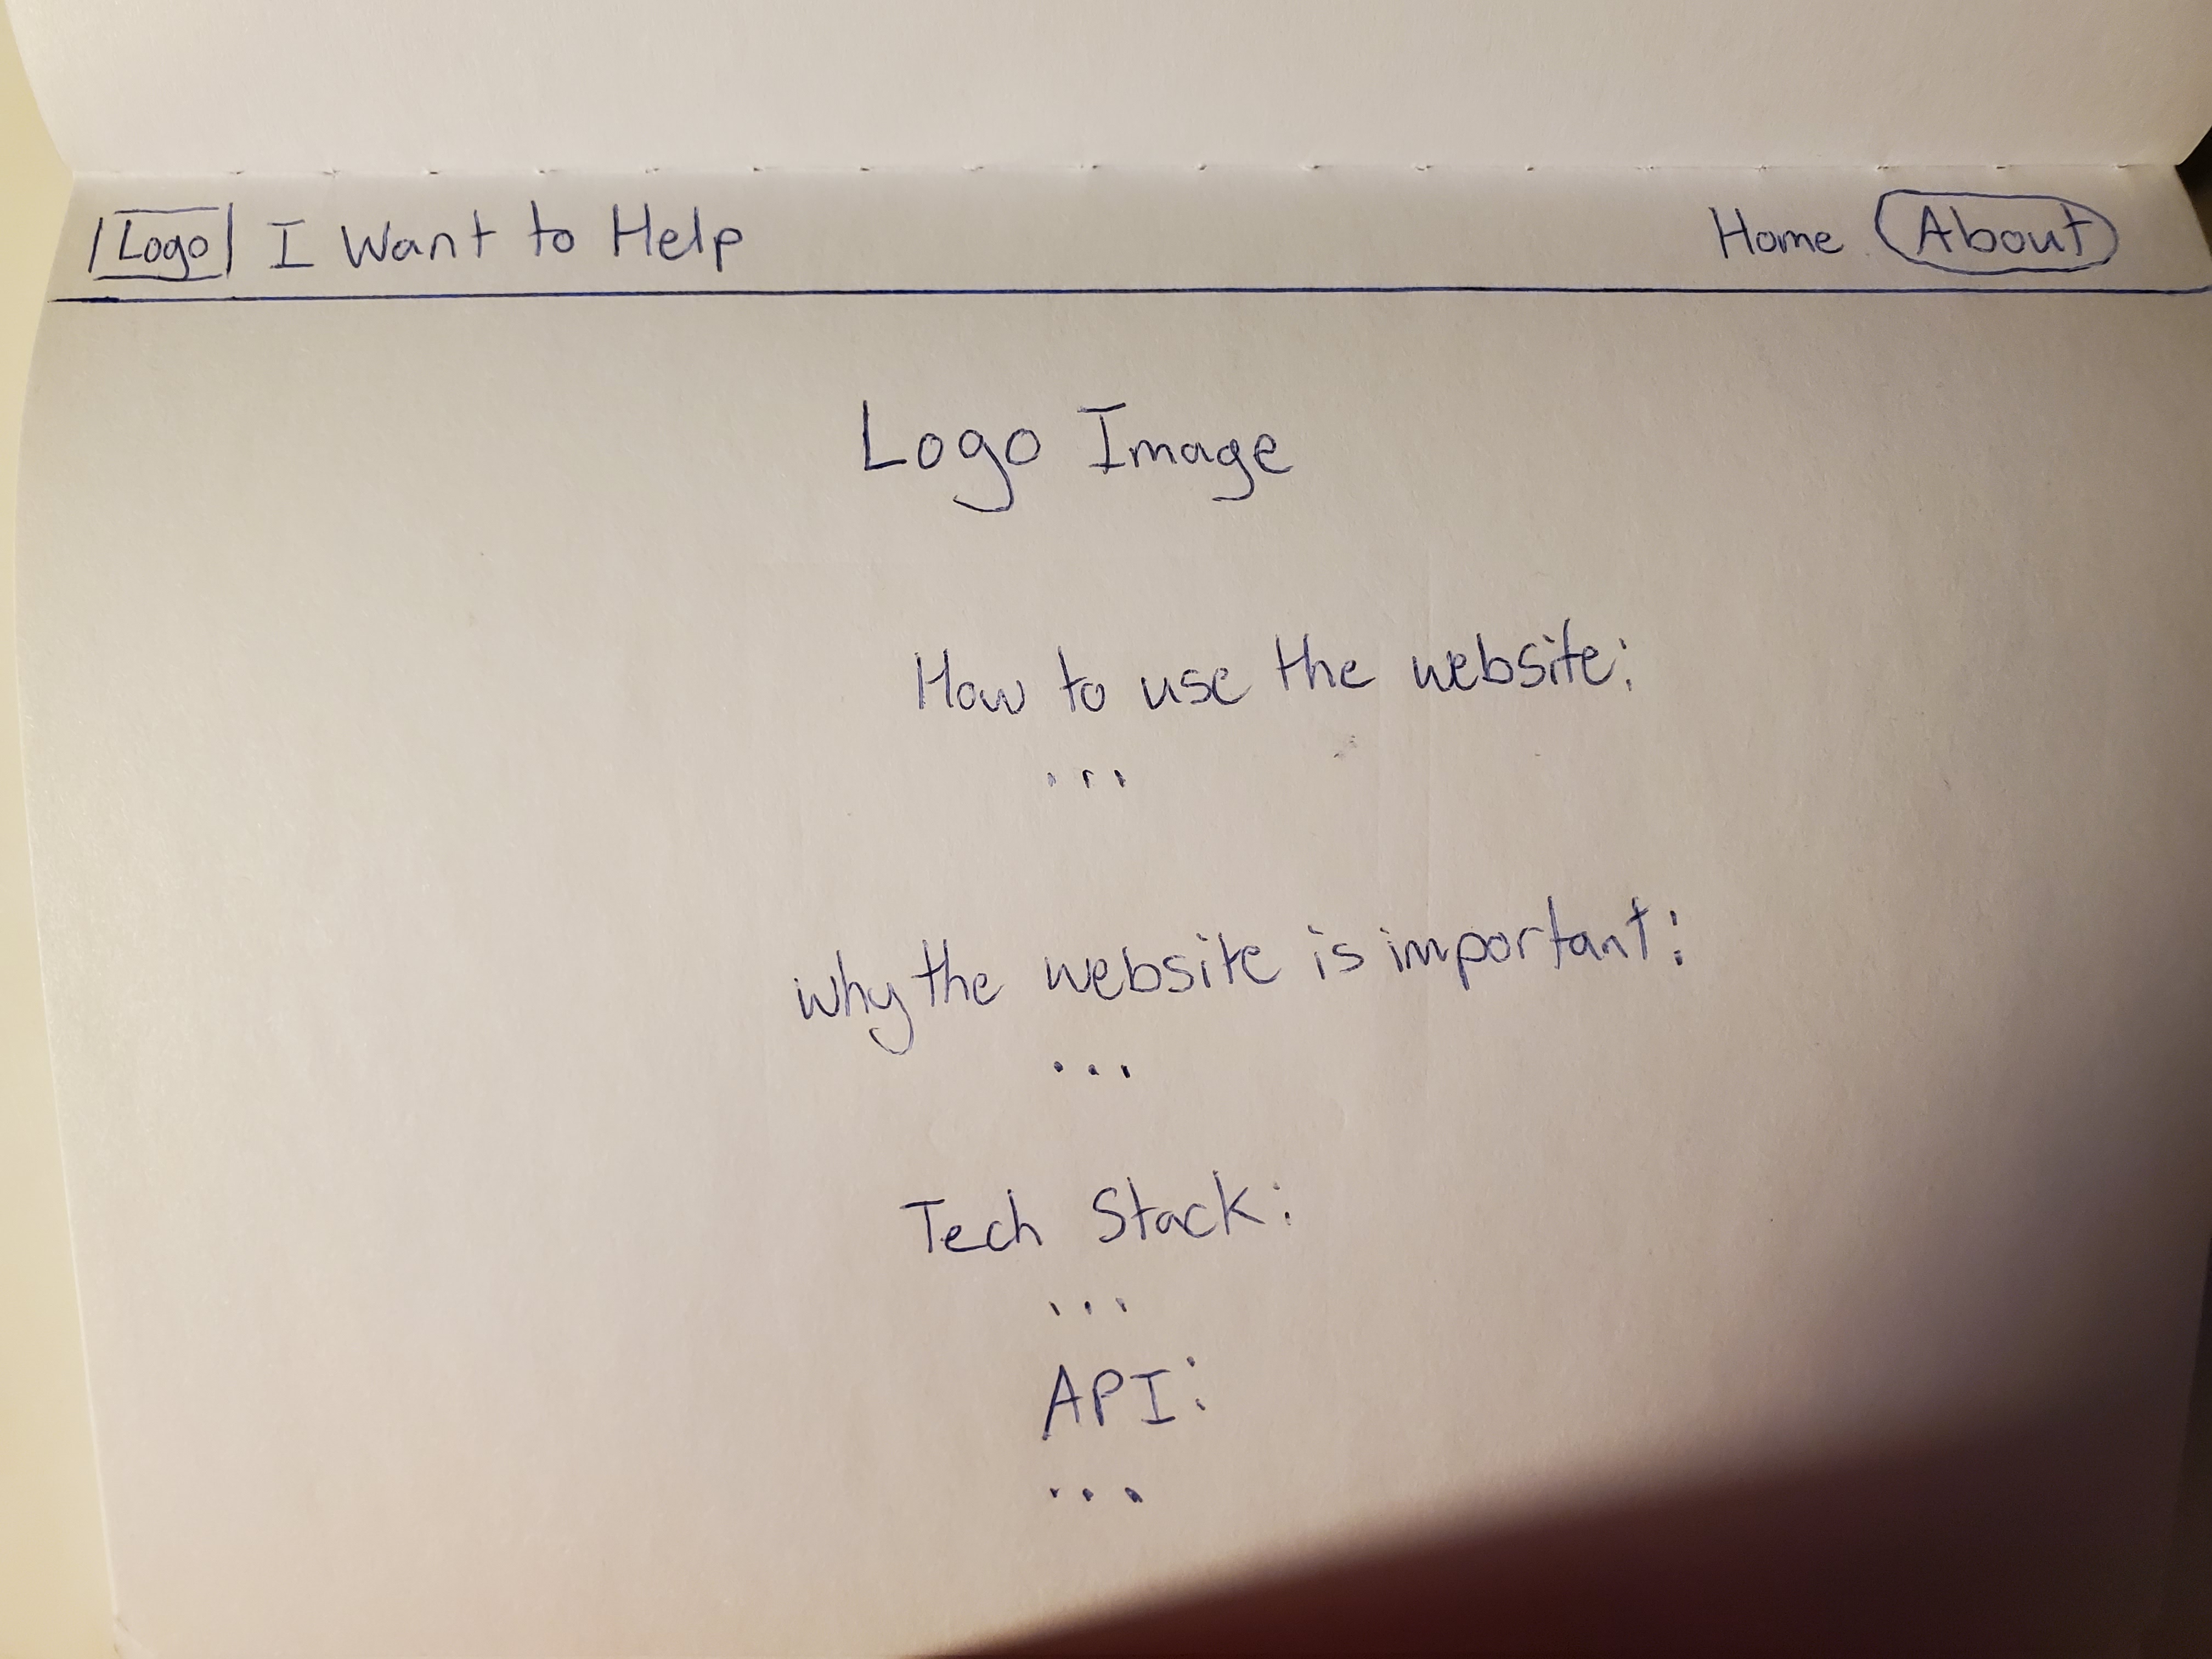 Logo I Want to Help Home About
Logo Image
How to use the website:
...
Why the website is important:
...
Tech Stack:
...
API:
...